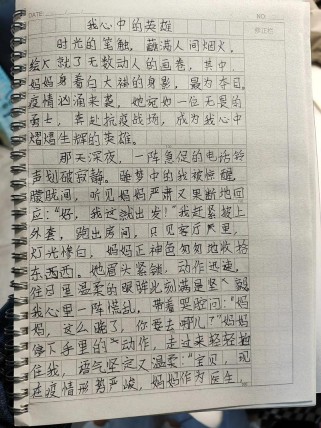 DATE
NO
我心中的英雄
时光的笔触，蘸满人间烟火，
绘就了无数动人的画卷，其中，
妈妈身着白大褂的身影，最为夺目。
疫情汹涌来袭，她宛如一位无畏的
勇士，奔赴抗疫战场，成为我心中
熠熠生辉的英雄。
那天深夜，一阵急促的电话铃
声划破寂静。睡梦中的我被惊醒，
朦胧间，听见妈妈严肃又果断地回
应：“好，我这就出发！”我赶紧披上
外套，跑出房间，只见客厅里，
灯光惨白，妈妈正神色匆匆地收拾
东西。她眉头紧锁，动作迅速，
往日里温柔的眼眸此刻满是坚毅
我心里一阵慌乱，带着哭腔问：“妈
妈，这么晚了，你要去哪儿？”妈妈
停下手里的动作，走过来轻轻抱
住我，语气坚定又温柔：“宝贝，现
在疫情形势严峻，妈妈作为医生，